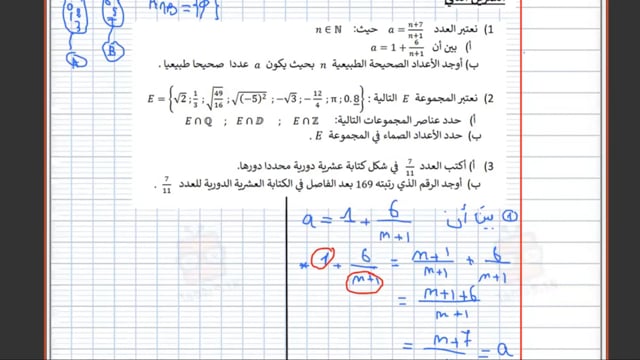 1) نعتبر العدد a = \frac{n+7}{n+1} حيث: n ∈ ℕ
أ) بين أن a = 1 + \frac{6}{n+1}
ب) أوجد الأعداد الصحيحة الطبيعية n بحيث يكون a عددا صحيحا طبيعيا .
2) نعتبر المجموعة E التالية : E = {√2 ; \frac{1}{3} ; √\frac{49}{16} ; √(−5)² ; −√3 ; −\frac{12}{4} ; π ; 0.8}
أ) حدد عناصر المجموعات التالية: E ∩ ℤ ; E ∩ 𝔻 ; E ∩ ℚ
ب) حدد الأعداد الصماء في المجموعة E .
3) أ) أكتب العدد \frac{7}{11} في شكل كتابة عشرية دورية محددا دورها.
ب) أوجد الرقم الذي رتبته 169 بعد الفاصل في الكتابة العشرية الدورية للعدد \frac{7}{11} .
بيّن أن a = 1 + \frac{6}{n+1}
* 1 + \frac{6}{n+1} = \frac{n+1}{n+1} + \frac{6}{n+1}
= \frac{n+1+6}{n+1}
= n+7 = a